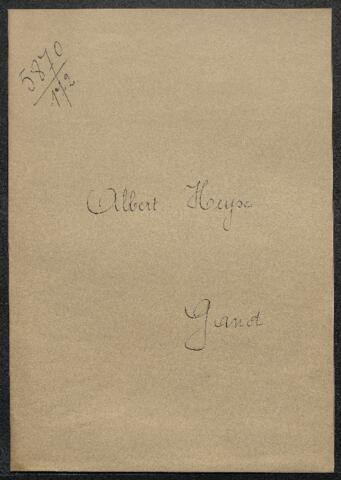 5870
1/2
Albert Heyse
Gand